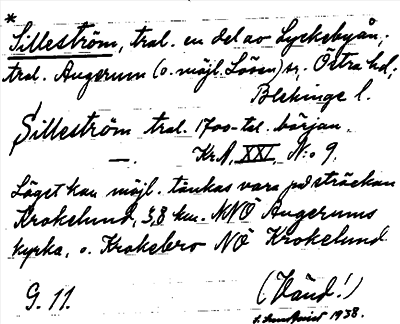 *
Silleström, tral. en del av Lyckebyån;
tral. Augerum (o. möjl. Lösen) sn; Östra hd;
Blekinge l.
Silleström tral. 1700-tal. början.
—. Kr A, XXI, N:o 9.
Läget kan möjl. tänkas vara på sträckan
Krokelund, 3,8 km. NNÖ Augerums
kyrka, o. Krokebro NÖ Krokelund
G. 11. (Vänd!)
1938.